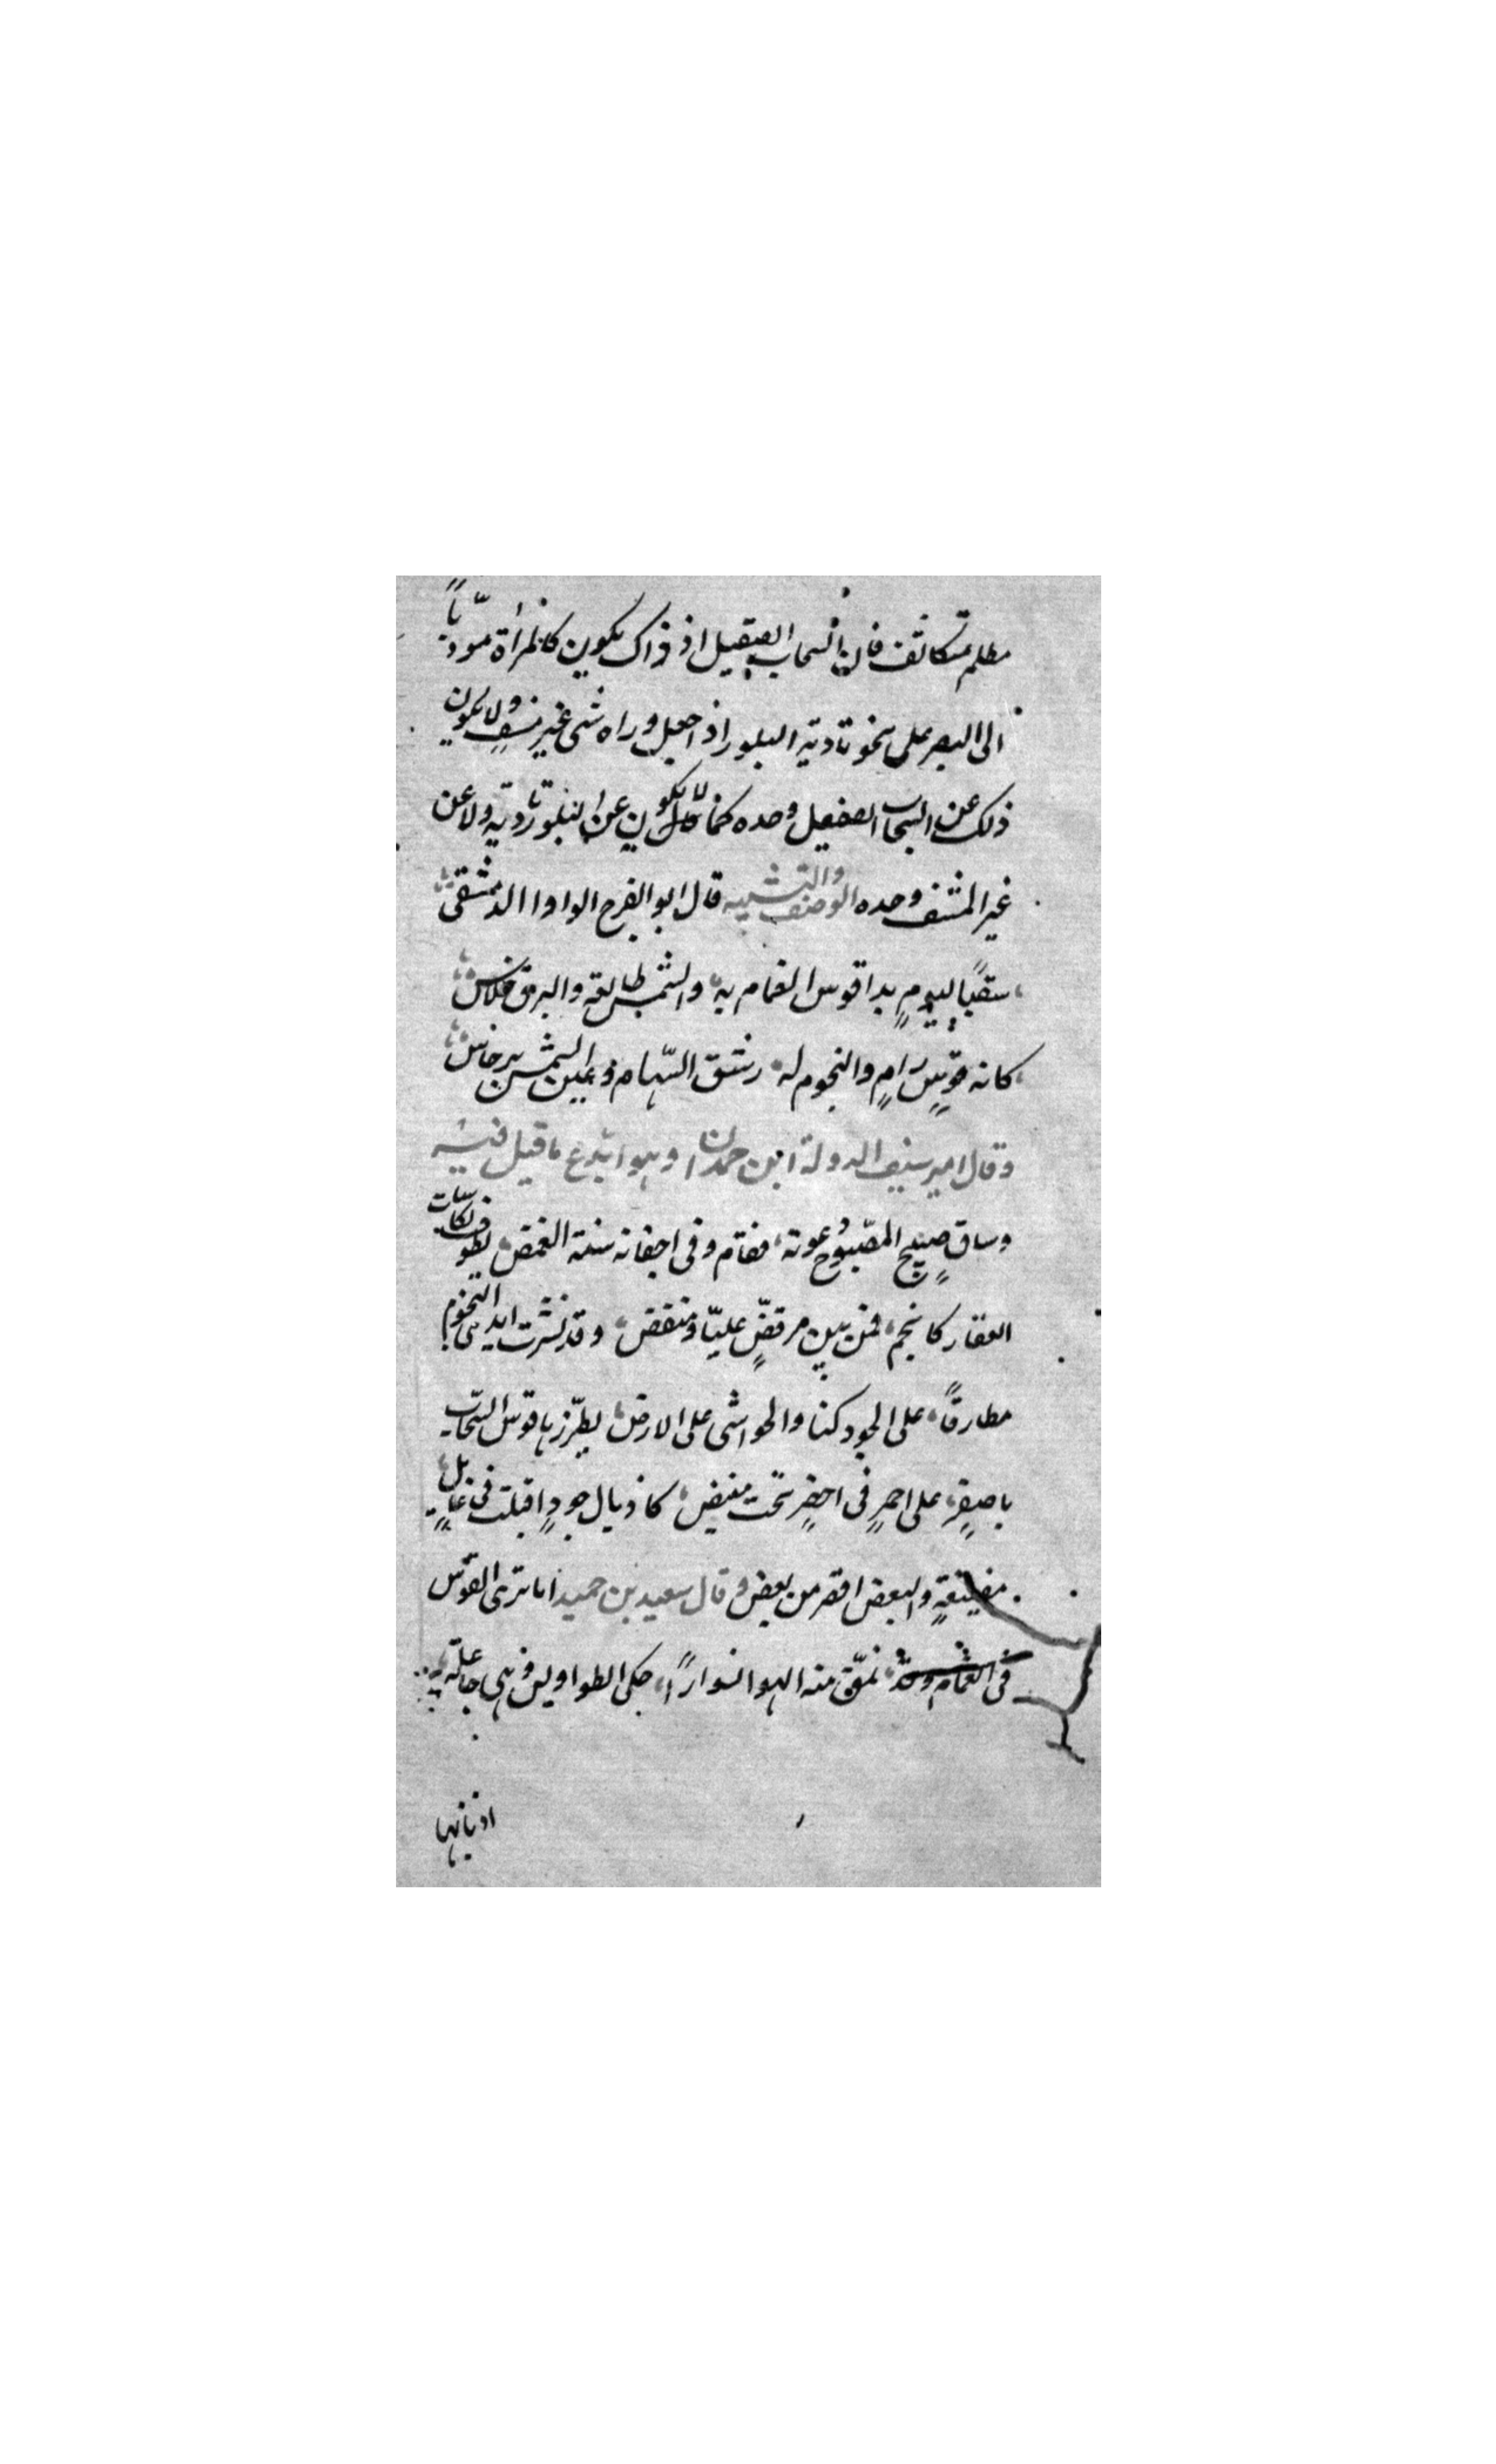 مظلم متكاثف فان السحاب الصقيل اذ ذاك يكون كالمرأة مودّياً
الى البصر على نحو تادية البلور اذ اجعل وراه شى غير مشفٍ ولا يكون
ذلك عن السحاب الصقيل وحده كما لا يكون عن البلور تادية ولا عن
غير المشف وحده الوصف والتشبيه قال ابو الفرج الواوا الدمشقى
سقياً ليومٍ بدا قوس الغمام به والشمس طالعة والبرق خلاس
كانه قوس رامٍ والنجوم له رشق السّهام وعين الشمس برجاس
وقال امير سيف الدولة ابن حمدان وهو ابدع ما قيل فيه
وساقٍ صبيحٍ للصّبوح دعوته فقام وفى اجفانه سنة الغمض يطوف بكاسات
العقار كانجم فمن بين مرفضٍّ عليّا ومنقض وقد نشرت ايدى النجوم
مطارقاً على الجود كنا والحواشى على الارض يطرّزها قوس السّحاب
باصفرٍ على احمرٍ فى اخضرٍ تحت مبيض كاذيال جودٍ اقبلت فى غلايل
مصبغةٍ والبعض اقصر من بعض وقال سعيد بن حميد اما ترى القوس
فى الغمام وقد نمّق منه الهوا نوارًا حكى الطواويس وهى جاعلة
اذنابها